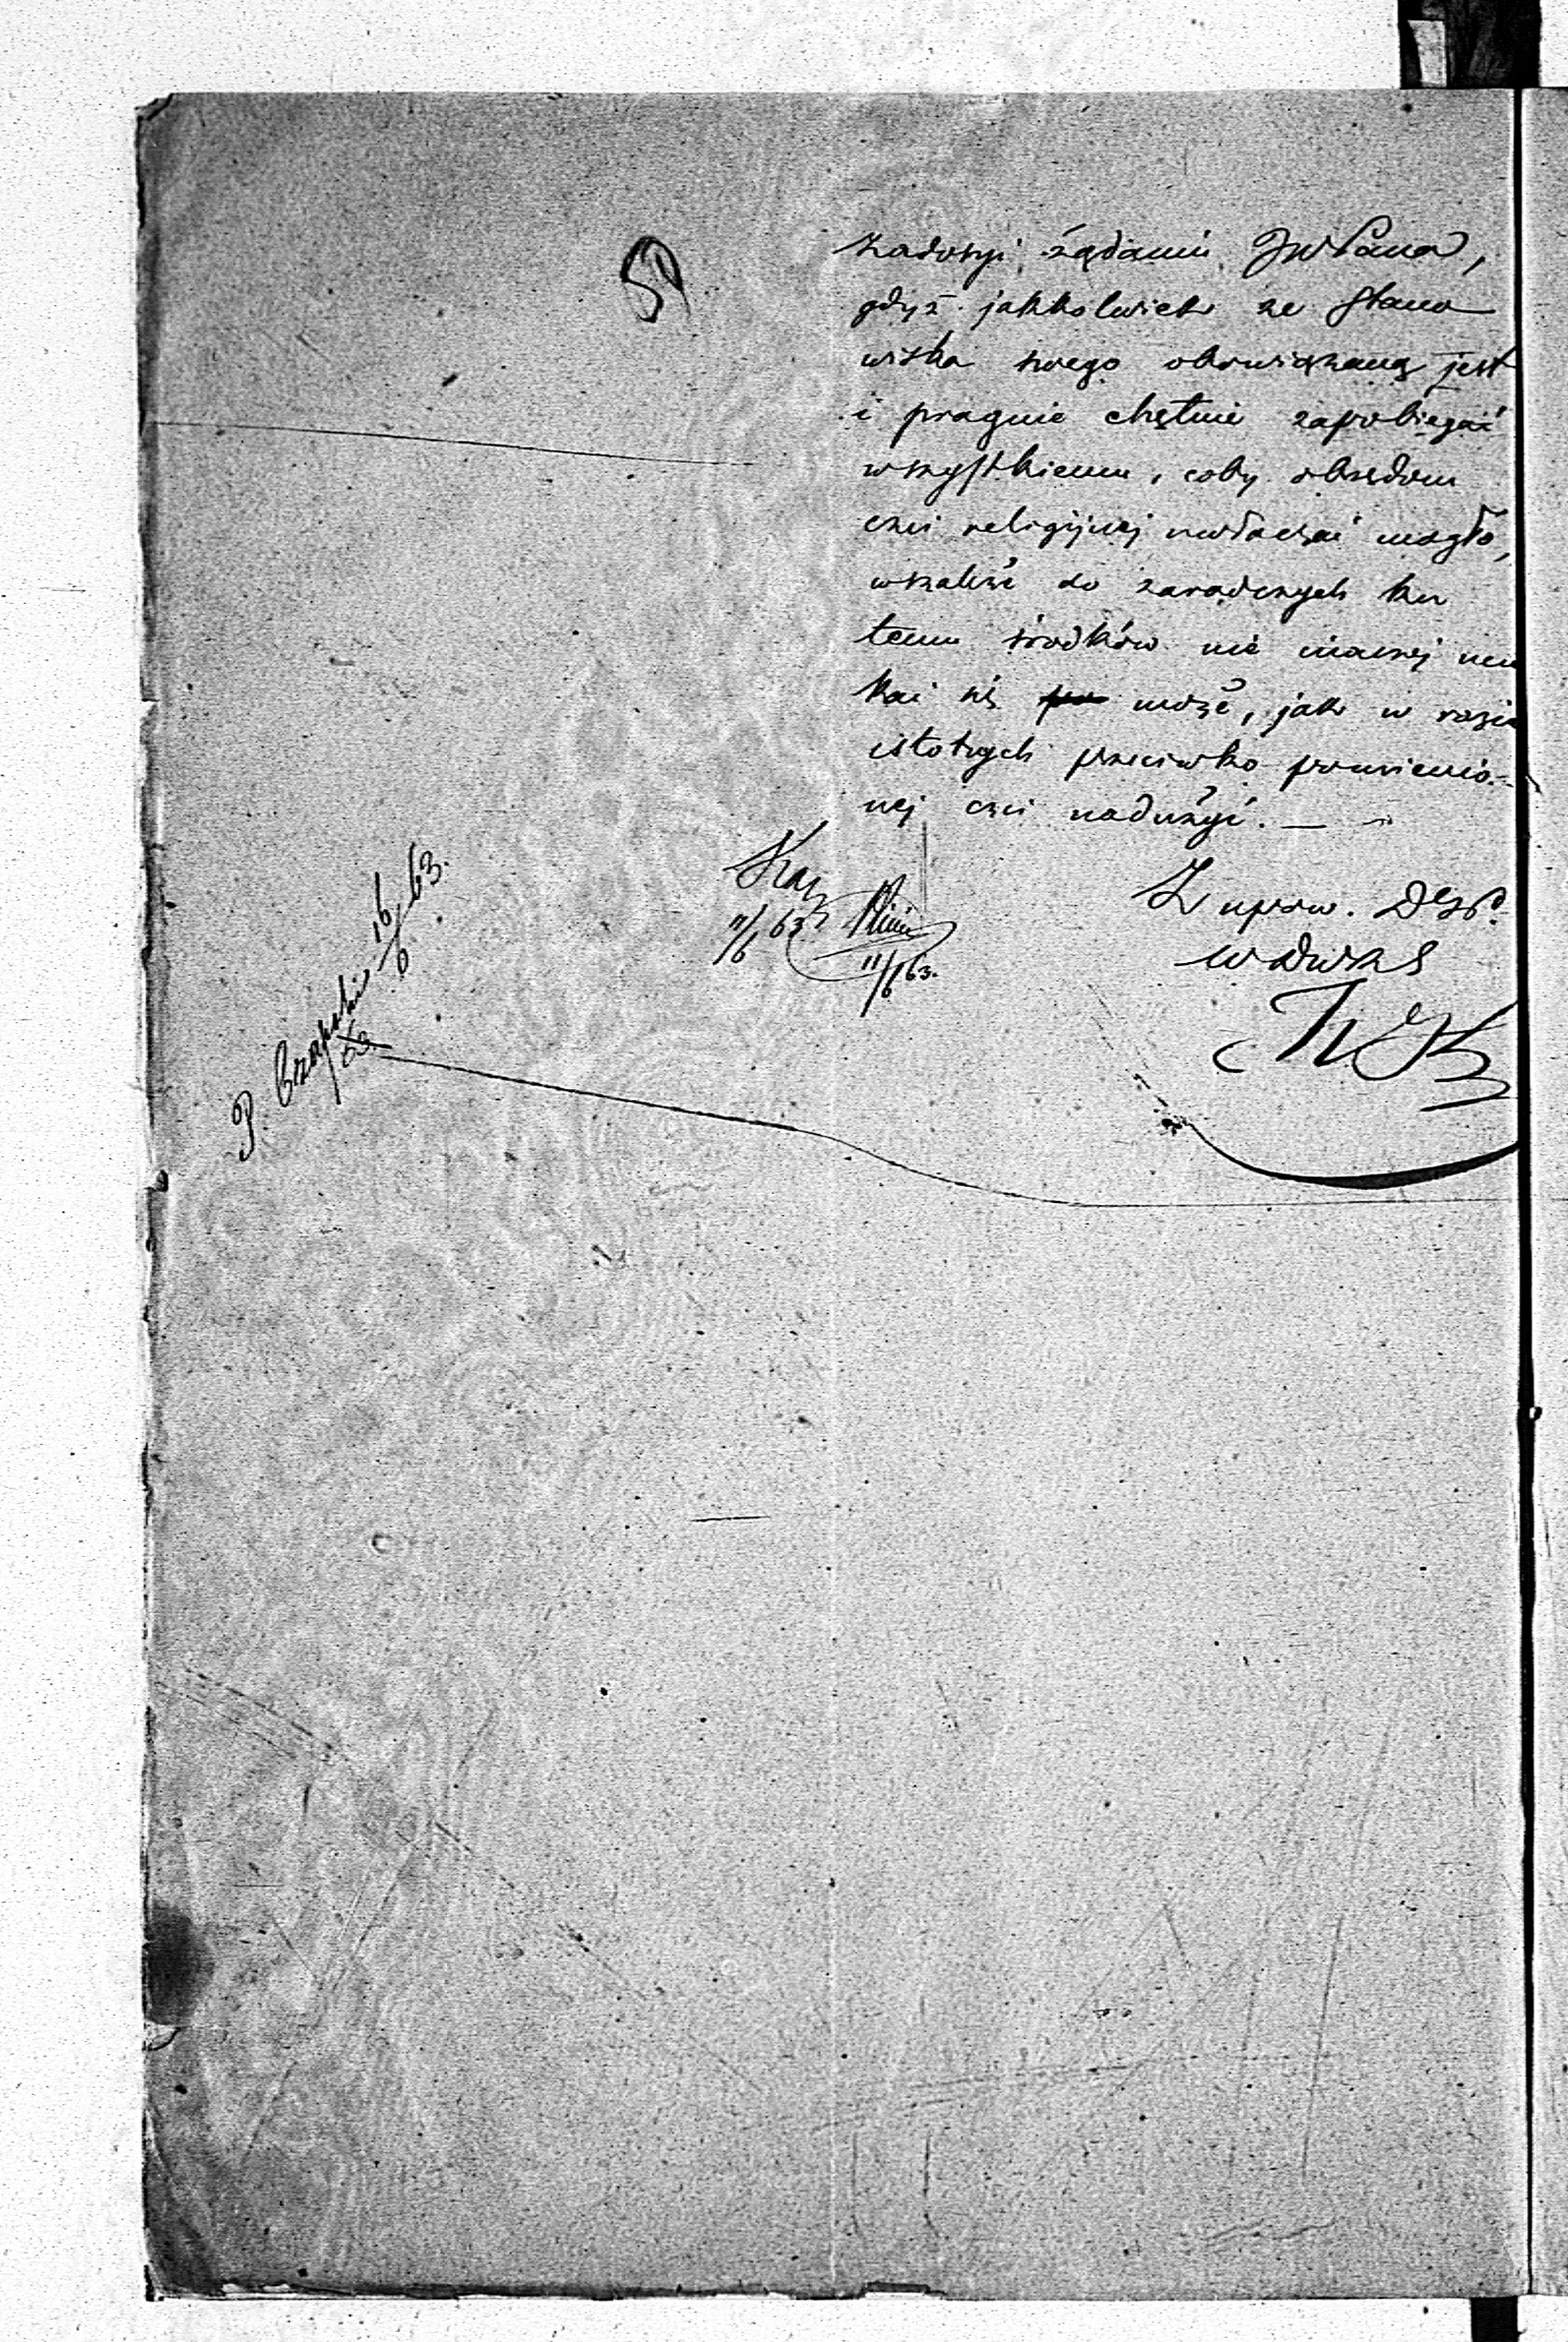 59
zadosyć żądaniu JWPana,
gdyż jakkolwiek ze stano
wiska swego obowiązaną jest
i pragnie chętnie zapobiegać
wszystkiemu, coby obrzędom
czci religijnej uwłaczać mogło,
wszakże do zaradczych ku
temu środków nie inaczej uci
kać się może, jak w razie
istotnych przeciwko pomienio-
nej czci nadużyć. —
Z upow.
11/6 63
11/6 63.
P. Czapski 16/6 63.